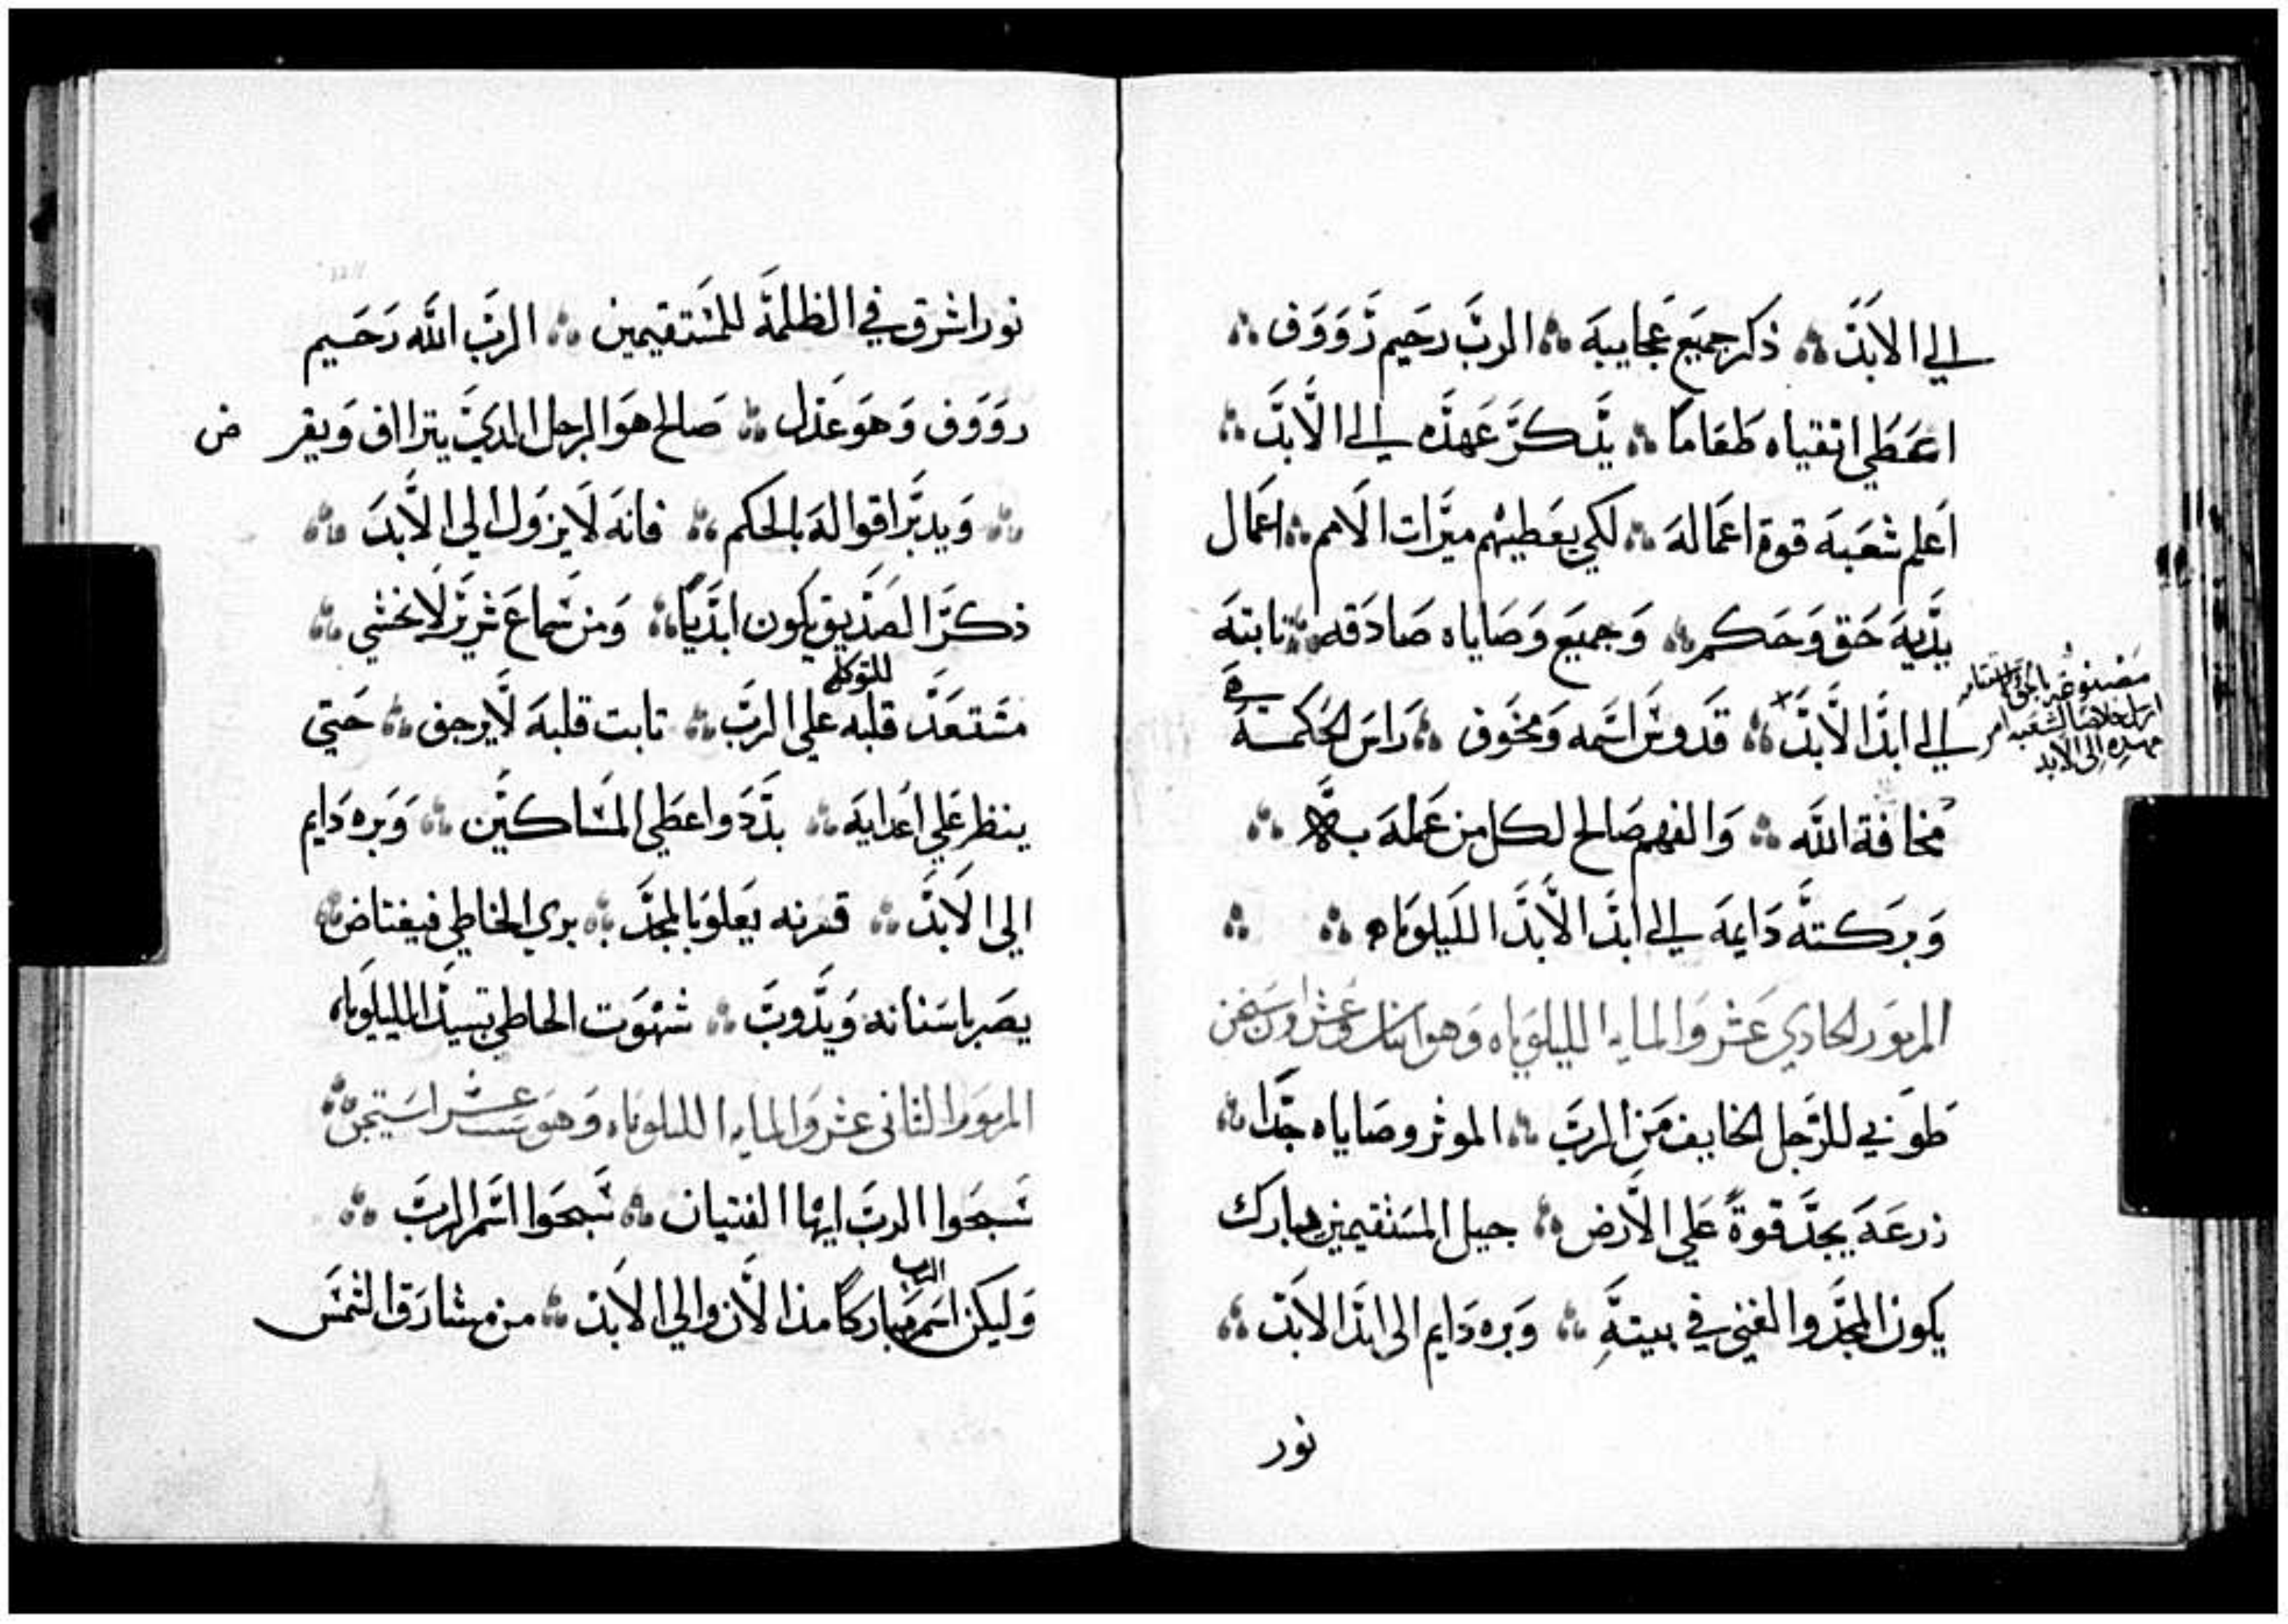 الي الابد ذكر جميع عجايبه الرب رحيم رووف
اعطي اتقياه طعاما يذكر عهده الي الابد
اعلم شعبه قوة اعماله لكي يعطيهم ميرات الامم اعمال
يديه حق وحكم وجميع وصاياه صادقه تابته
الي ابد الابد قدوس اسمه ومخوف راس الحكمة
مصنوعه بالحق
ارسل خلاصا لشعبه امر
عهده الي الابد
مخافة الله والفهم صالح لكل من عمله به
وبركته دايمه الي ابد الابد الليلوياه
المزمور الحادي عشر والمايه الليلوياه وهو اتنان وعشرون ستخن
طوبي للرجل الخايف من الرب الموثر وصاياه جدا
زرعه يجد قوة علي الارض جيل المستقيمين يبارك
يكون المجد والغني في بيته وبره دايم الي ابد الابد
نور
نور اشرق في الظلمة للمستقيمين الرب الله رحيم
رووف وهو عدل صالح هو الرجل الدي يتراأف ويقرض
ويدبر اقواله بالحكم فانه لا يزول الي الابد
ذكر الصديق يكون ابديا ومن سماع شرير لا يخشي
للتوكل
مستعد قلبه علي الرب تابت قلبه لا يرجف حتي
ينظر علي اعدايه بدد واعطي المساكين وبره دايم
الي الابد قرنه يعلو بالمجد يري الخاطي فيغتاض
يصر باسنانه ويدوب شهوت الخاطي تبيد الليلوياه
المزمور الثاني عشر والمايه الليلوياه وهو عشر استيخن
سبحوا الرب ايها الفتيان سبحوا اسم الرب
الرب
وليكن اسم مباركا مند الان والي الابد من مشارق الشمس